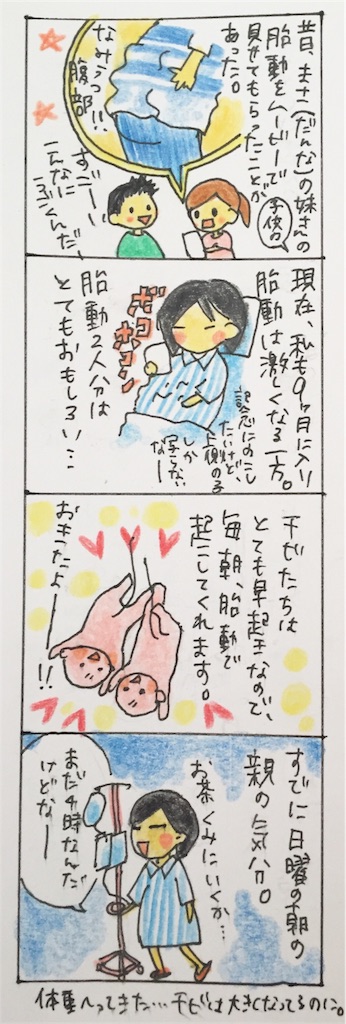 昔、まさこ(だんな)の妹さんの
胎動をムービーで
見せてもらったことが
あった。
子供の
なみうつ!!
腹部
すごーい、
こんなに
うごくんだ、
現在、私も9ヶ月に入り
胎動は激しくなる一方。
ボコボコン
記念にのこし
たいけど、
上側の子
しか
写らない
なー
胎動2人分は
とてもおもしろい…
チビたちは
とても早起きなので、
毎朝、胎動で
起こしてくれます。
おきたよーー!!
すでに日曜の朝の
親の気分。
お茶くみにいくか…
まだ4時なんだ
けどなー
体重へってきた…チビは大きくなってるのに。